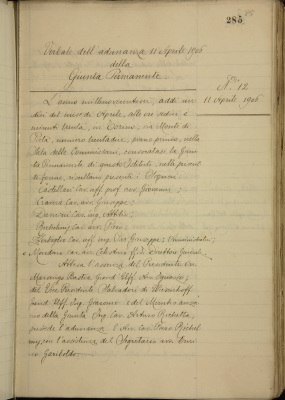 285
Verbale dell'adunanza 11 Aprile 1906
della
Giunta Permanente.
N.° 12
11 Aprile 1906
L'anno millenovecentosei, addì un-
dici del mese di Aprile, alle ore sedici e
minuti trenta, in Torino, via Monte di
Pietà, numero trentadue, piano primo, nella
Sala delle Commissioni, convocatasi la Giun-
ta Permanente di questo Istituto, nelle prescrit-
te forme, risultano presenti i Signori:
Castellari Cav. uff. prof. avv. Giovanni;
Cav. avv. Giuseppe;
Cav. ing. Attilio;
Cav. avv. Piero;
Cav. uff. ing. Giuseppe;
e Cav. avv. Direttore Generale.
Attesa l'assenza del Presidente Cav.
Marsengo Bastia Grand' Uff. Avv. Ignazio;
del Vice Presidente Salvadori di Wiesenhoff
Grand' Uff. Ing. Giacomo e del Membro anzia-
no della Giunta Ing. Cav. Arturo
presiede l'adunanza l'Avv. Cav. Piero
coll'assistenza del Segretario avv.
Garibaldo.